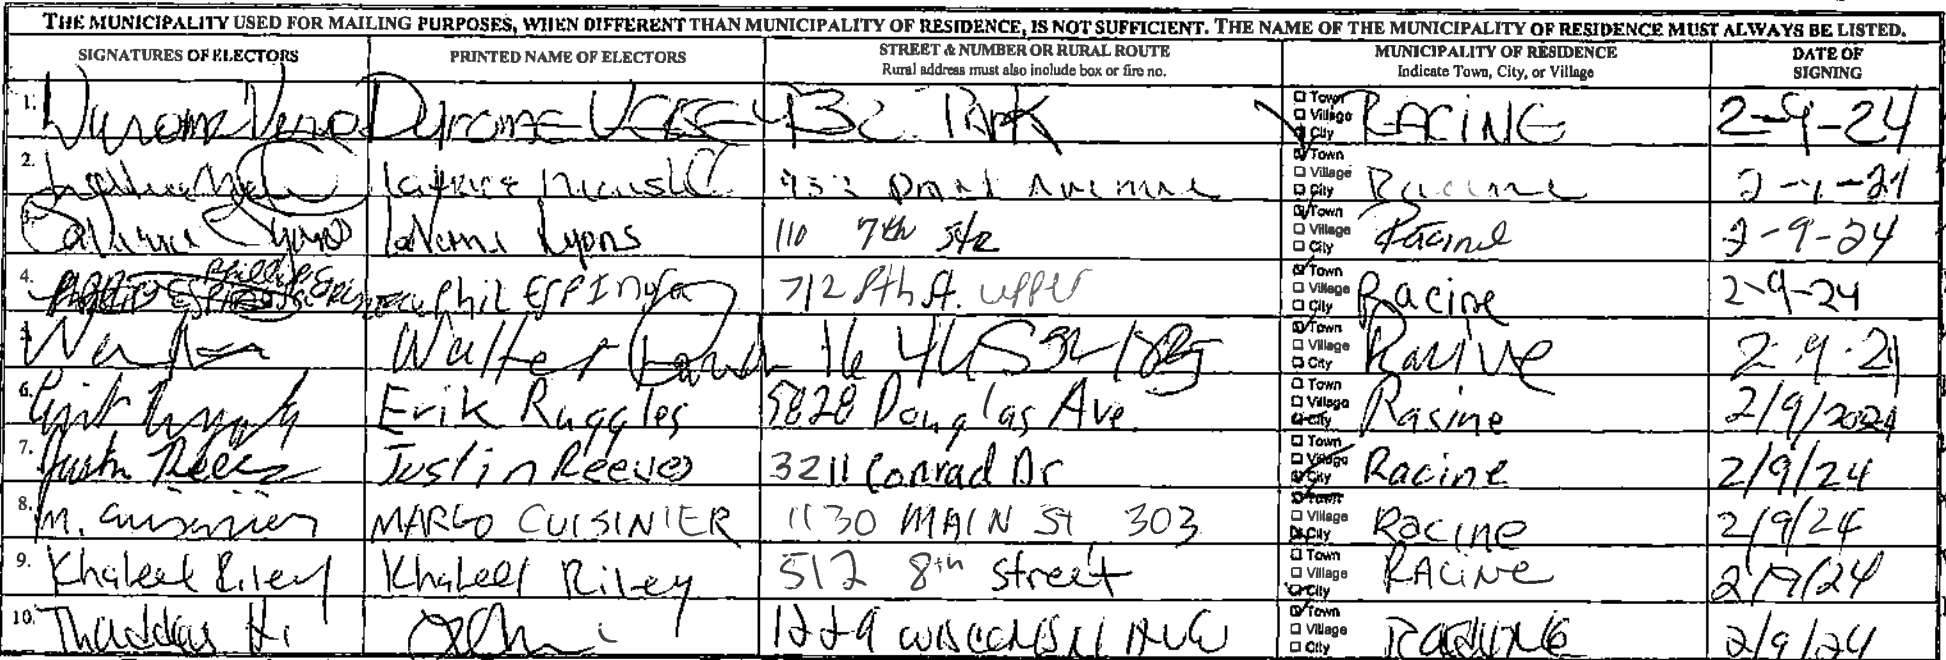 THE MUNICIPALITY USED FOR MAILING PURPOSES, WHEN DIFFERENT THAN MUNICIPALITY OF RESIDENCE, IS NOT SUFFICIENT. THE NAME OF THE MUNICIPALITY OF RESIDENCE MUST ALWAYS BE LISTED.
SIGNATURES OF ELECTORS PRINTED NAME OF ELECTORS STREET & NUMBER OR RURAL ROUTE MUNICIPALITY OF RESIDENCE DATE OF
Rural address must also include box or fire no. Indicate Town, City, or Village SIGNING
1. 432 Park Town Village City RACINE 2-9-24
2. Town Village City Racine
3. Lyons LaVerne Lyons 110 7th Town Village City Racine 2-9-24
4. Phil 712 8th St. upper Town Village City Racine 2-9-24
5. Walter Town Village City Racine
6. Erik Ruggles 5828 Douglas Ave. Town Village City Rasine 2/9/2024
7. Justin Reeves Justin Reeves 3211 Conrad Dr Town Village City Racine 2/9/24
8. M. Cuisinier MARGO CUISINIER 1130 MAIN St 303 Town Village City Racine 2/9/24
9. Khaleel Riley Khaleel Riley 512 8th street Town Village City RACINE 2/9/24
10. Thaddas 1229 WISCONSIN AVE Town Village City RACINE 2/9/24